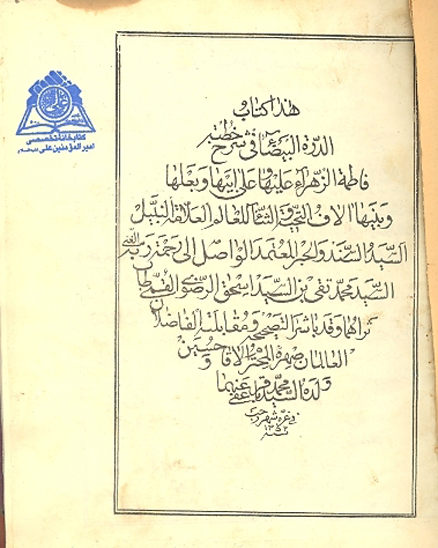 هذا كتاب
الدرة البيضاء في شرح خطبة
فاطمة الزهراء عليها وعلى ابيها وبعلها
وبنيها آلاف التحية والثناء للعالم العلامة النبيل
السيد السند والحبر المعتمد الواصل الى رحمة ربه الغني
السيد محمد تقي بن السيد اسحق الرضوي القمي طاب
ثراهما وقد باشر التصحيح ومقابلته الفاضلان
العالمان صهره المحترم الاقا حسين و
ولده السيد محمد عفي عنهما
في غرة شهر رجب
سنة ١٣٥٢
كتابخانه تخصصی
امیرالمؤمنین علی علیه‌السلام